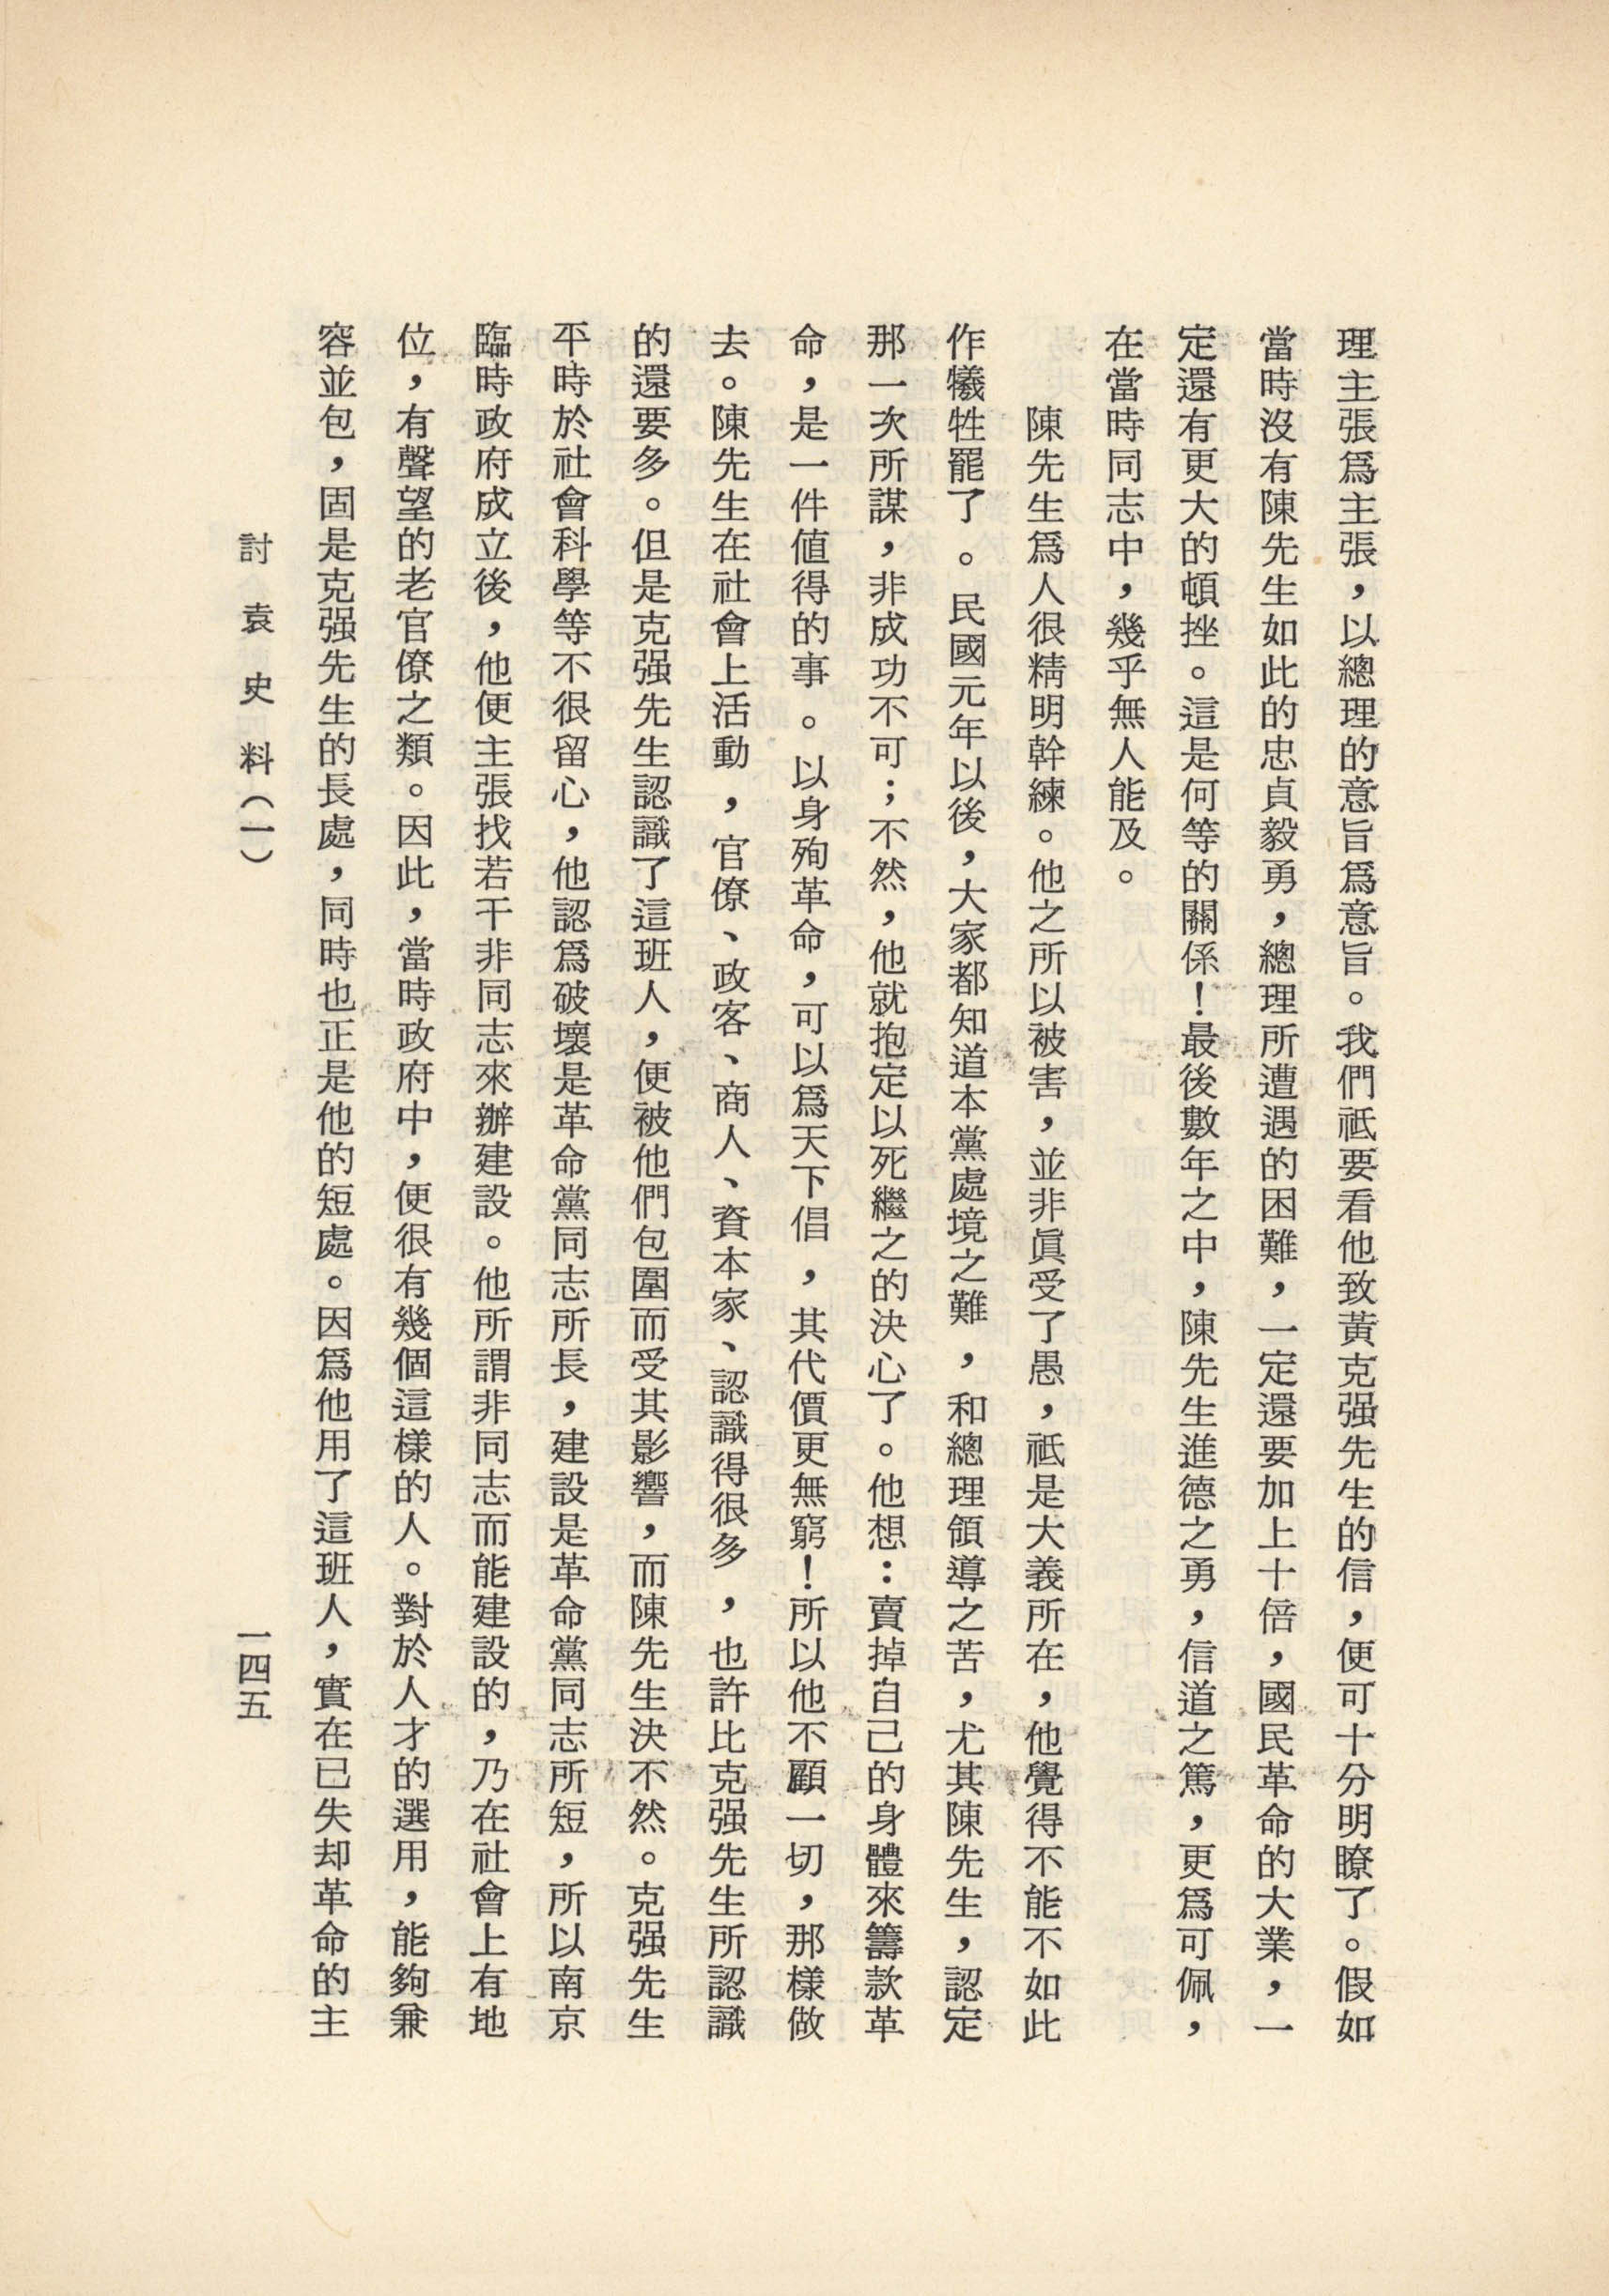 理主張爲主張，以總理的意旨爲意旨。我們祇要看他致黃克强先生的信，便可十分明瞭了。假如
當時沒有陳先生如此的忠貞毅勇，總理所遭遇的困難，一定還要加上十倍，國民革命的大業，一
定還有更大的頓挫。這是何等的關係！最後數年之中，陳先生進德之勇，信道之篤，更爲可佩，
在當時同志中，幾乎無人能及。
陳先生爲人很精明幹練。他之所以被害，並非眞受了愚，祇是大義所在，他覺得不能不如此
作犧牲罷了。民國元年以後，大家都知道本黨處境之難，和總理領導之苦，尤其陳先生，認定
那一次所謀，非成功不可；不然，他就抱定以死繼之的決心了。他想：賣掉自己的身體來籌款革
命，是一件值得的事。以身殉革命，可以爲天下倡，其代價更無窮！所以他不顧一切，那樣做
去。陳先生在社會上活動，官僚、政客、商人、資本家、認識得很多，也許比克强先生所認識
的還要多。但是克强先生認識了這班人，便被他們包圍而受其影響，而陳先生決不然。克强先生
平時於社會科學等不很留心，他認爲破壞是革命黨同志所長，建設是革命黨同志所短，所以南京
臨時政府成立後，他便主張找若干非同志來辦建設。他所謂非同志而能建設的，乃在社會上有地
位，有聲望的老官僚之類。因此，當時政府中，便很有幾個這樣的人。對於人才的選用，能夠兼
容並包，固是克强先生的長處，同時也正是他的短處。因爲他用了這班人，實在已失却革命的主
討袁史料（一）
一四五